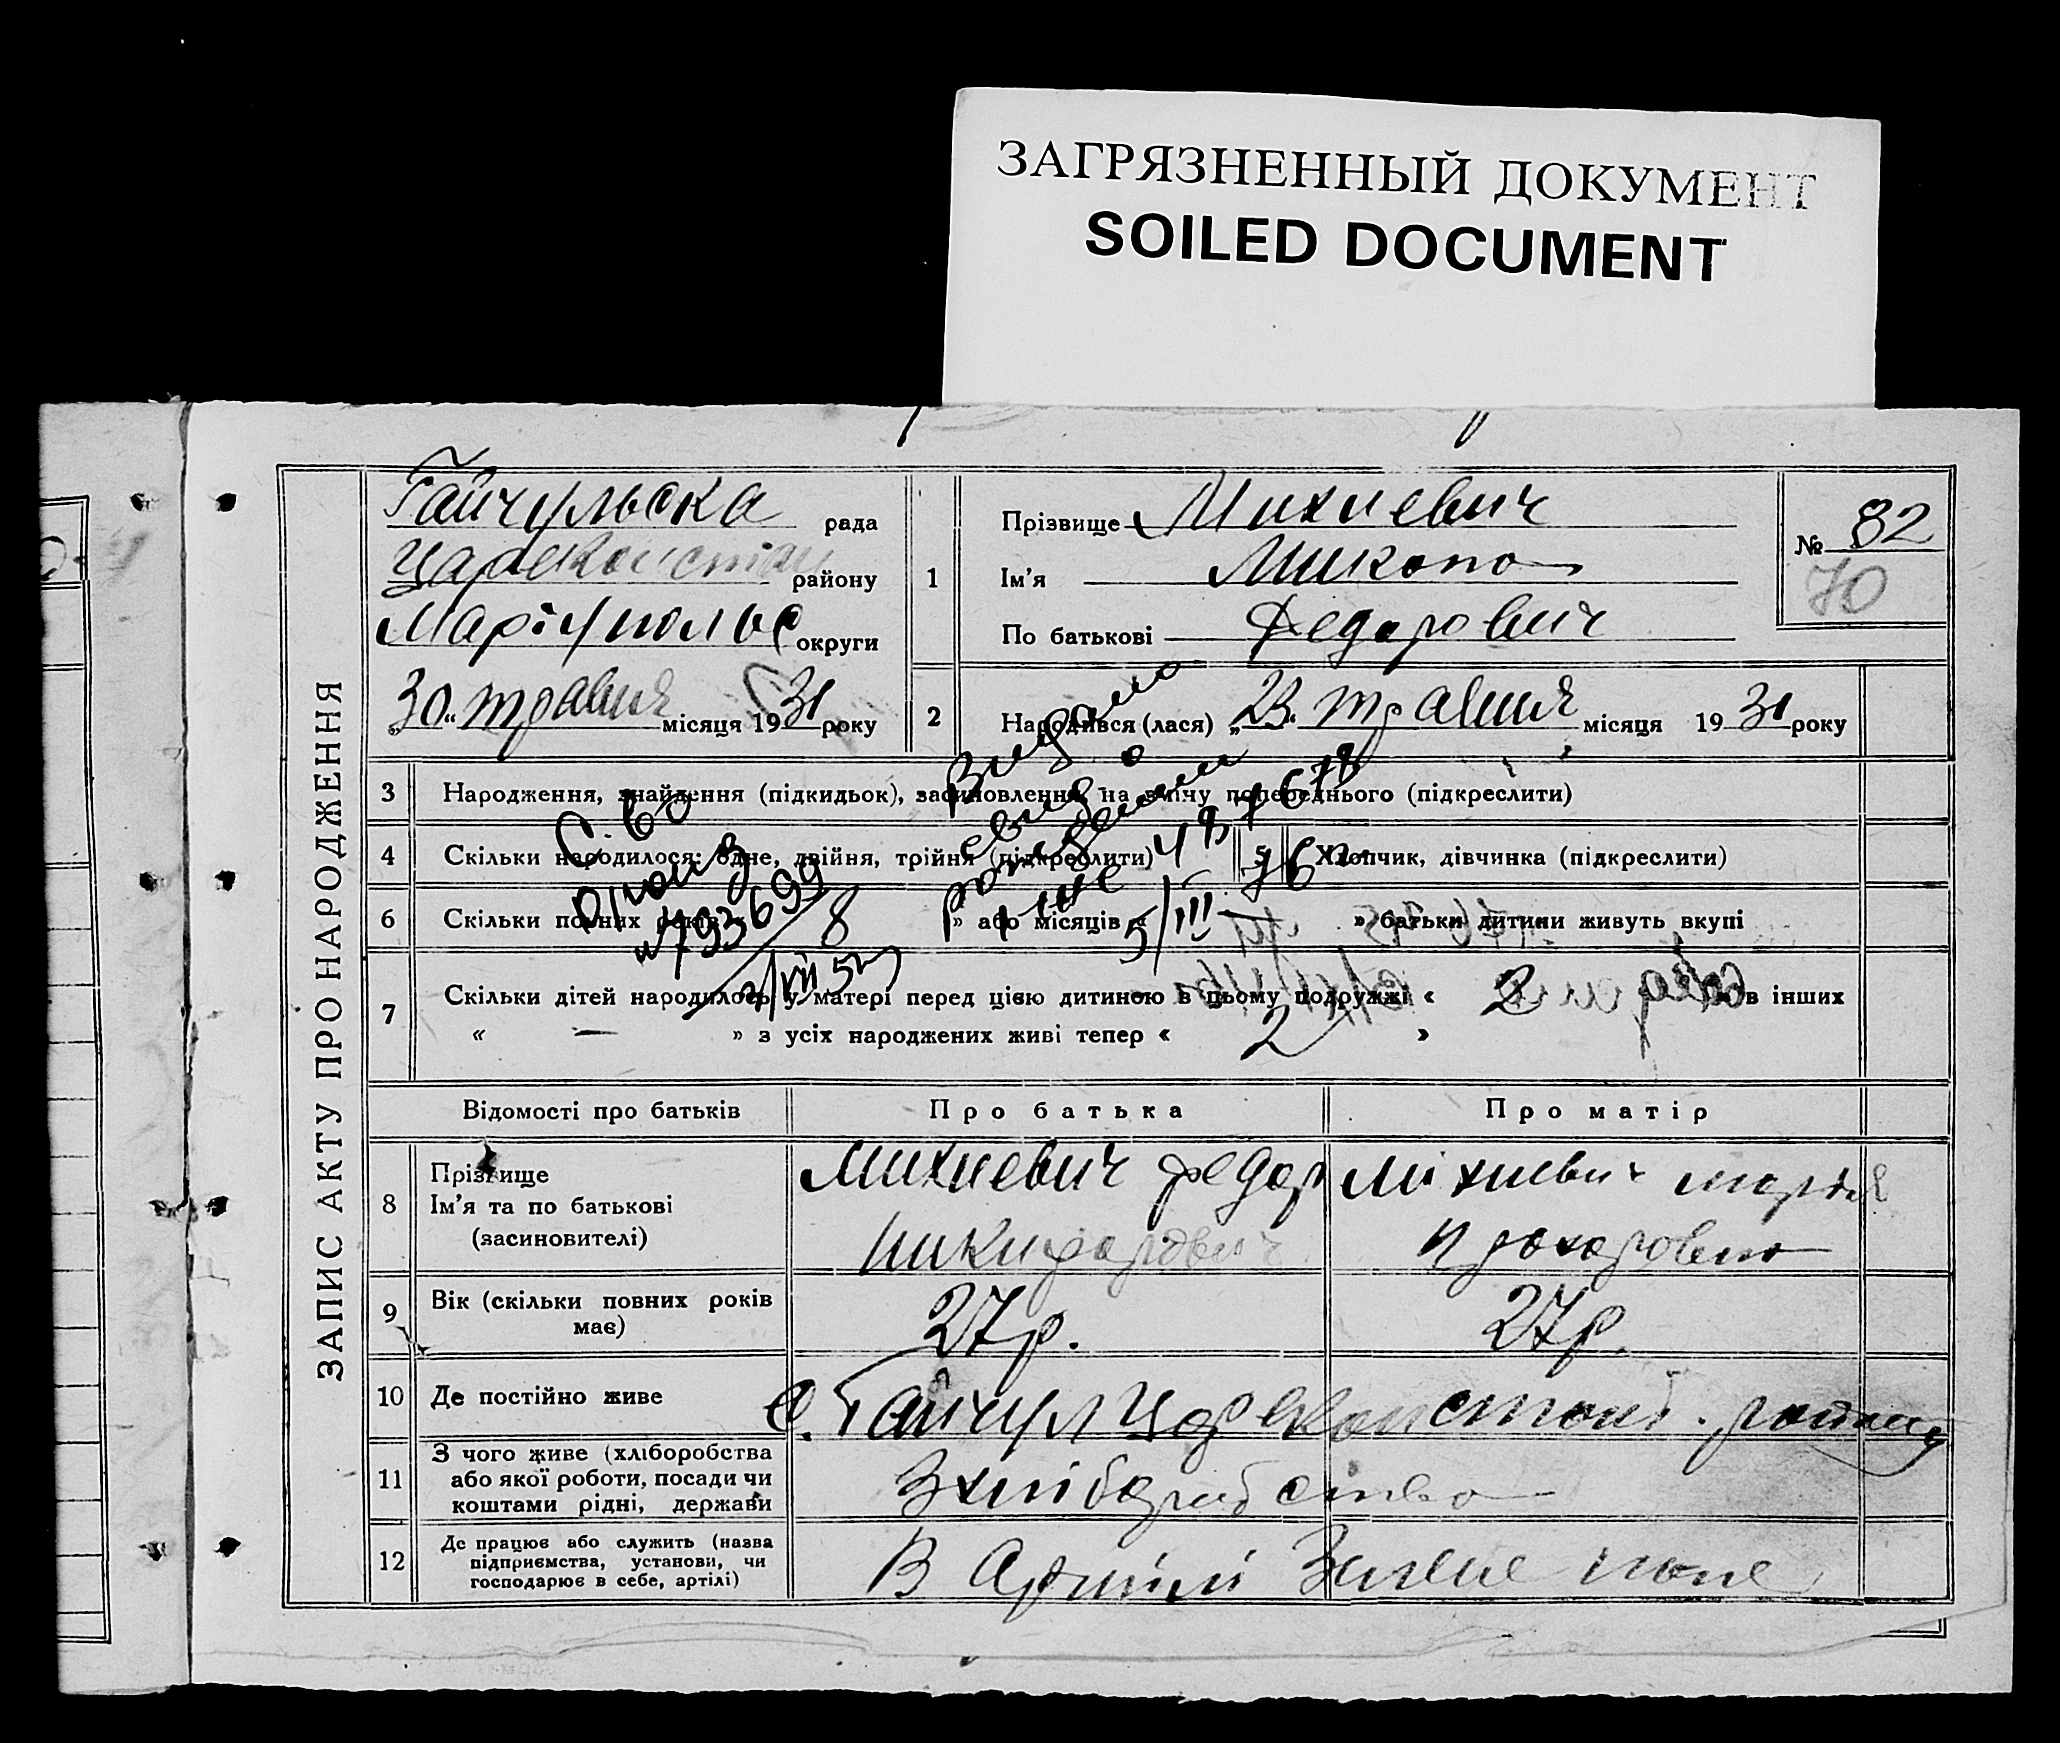 ЗАГРЯЗНЕННЫЙ ДОКУМЕНТ
SOILED DOCUMENT
ЗАПИС АКТУ ПРО НАРОДЖЕННЯ
Гайчульска рада
Царекон районy
Маріуполь округи
„30“ травня місяця 1931 року
1
Прізвище Михневич
Ім'я Микола
По батькові Федорович
№ 82
70
2 Народився (лася) „23. травня місяця 1931 року
3 Народження, знайдення (підкидьок), засиновлення, на зміну попереднього (підкреслити)
4 Скільки народилося: одне, двійня, трійня (підкреслити)
5 Хлопчик, дівчинка (підкреслити)
6 Скільки повних років » або місяців « » батьки дитини живуть вкупі
7 Скільки дітей народилось у матері перед цією дитиною в цьому подружжі « 2 в інших
« — » з усіх народжених живі тепер « 2 »
Видано
С. во
№ 793699
8
5/III 76
Відомості про батьків
Про батька
Про матір
8 Прізвище
Ім'я та по батькові
(засиновителі)
Михневич Федор
Никифорович
Міхневич марія
прохоровна
9 Вік (скільки повних років має)
27р.
27р.
10 Де постійно живе
с. Гайчул Царекон району
11 З чого живе (хліборобства або якої роботи, посади чи коштами рідні, держави
З хліборобства
12 Де працює або служить (назва підприємства, установи, чи господарює в себе, артілі)
В Артілі